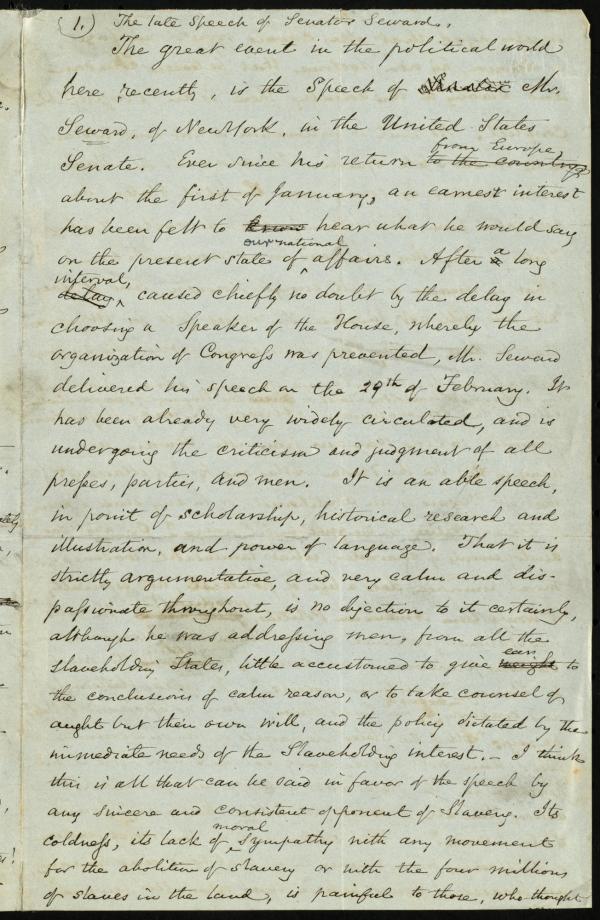 (1.) The late Speech of Senator Seward.
The great event in the political world
here, recently, is the Speech of Mr.
Seward, of New York, in the United States
from Europe,
Senate. Ever since his return to the country,
about the first of January, an earnest interest
has been felt to know hear what he would say
our national
on the present state of ^ affairs. After a long
interval,
delay ^ caused chiefly no doubt by the delay in
choosing a Speaker of the House, whereby the
organization of Congress was prevented, Mr. Seward
delivered his speech on the 29th of February. It
has been already very widely circulated, and is
undergoing the criticism and judgment of all
presses, parties, and men. It is an able speech,
in point of scholarship, historical research and
illustration, and power of language. That it is
strictly argumentative, and very calm and dis-
passionate throughout, is no objection to it certainly,
although he was addressing men, from all the
ear
slaveholding States, little accustomed to give weight to
the conclusions of calm reason, or to take counsel of
aught but their own will, and the policy dictated by the
immediate needs of the Slaveholding interest. – I think
this is all that can be said in favor of the speech by
any sincere and consistent opponent of Slavery. Its
moral
coldness, its lack of ^ sympathy with any movement
for the abolition of slavery or with the four millions
of slaves in the land, is painful to those, who thought